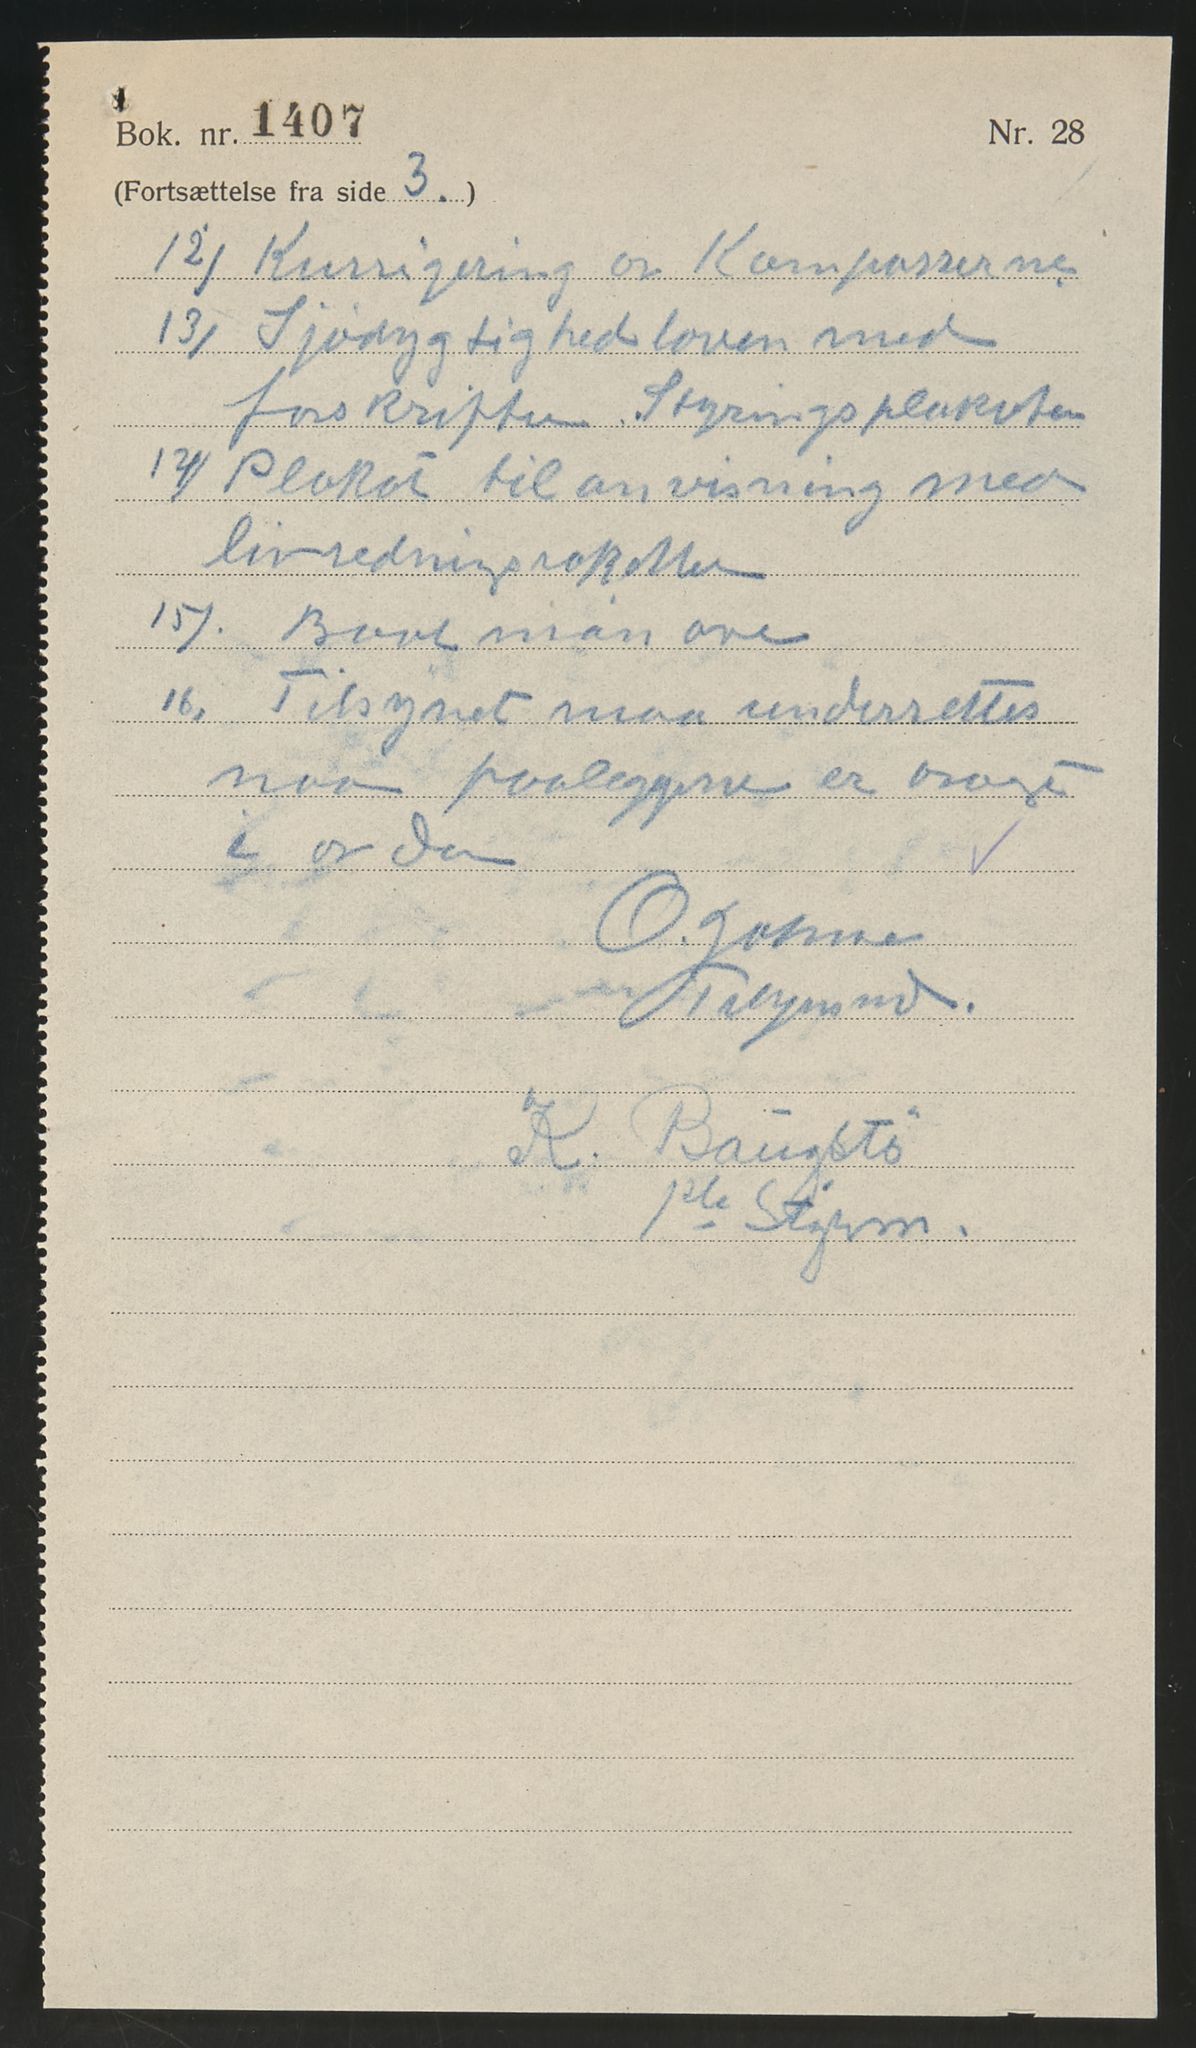 Bok. nr. 1407
Nr. 28
(Fortsættelse fra side 3.)
12) Kurrigering av Kompasserne
13) Sjødygtighedsloven med
forskrifter. Styringsplakaten
14) Plakat til anvisning med
livredningsraketter
15). Baat manøver
16. Tilsynet maa underrettes
naar paaleggene er bragt
i orden
O.
Tilsynsmd.
K. Baugstø
1ste Styrm.